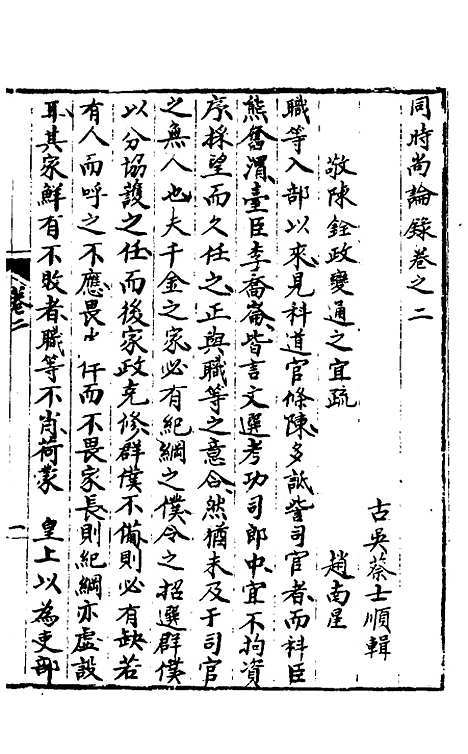 同時尚論錄卷之二
古吳蔡士順輯
敬陳銓政變通之宜疏
趙南星
職等入部以來見科道官條陳多詆訾司官者而科臣
熊奮渭臺臣李喬崙皆言文選考功司郎中宜不拘資
序採望而久任之正與職等之意合然猶未及于司官
之無人也夫千金之家必有紀綱之僕令之招選群僕
以分協護之任而後家政克修群僕不備則必有缺若
有人而呼之不應畏士仟而不畏家長則紀綱亦虛設
耳其家鮮有不敗者職等不肖荷蒙 皇上以為吏部
卷二
一